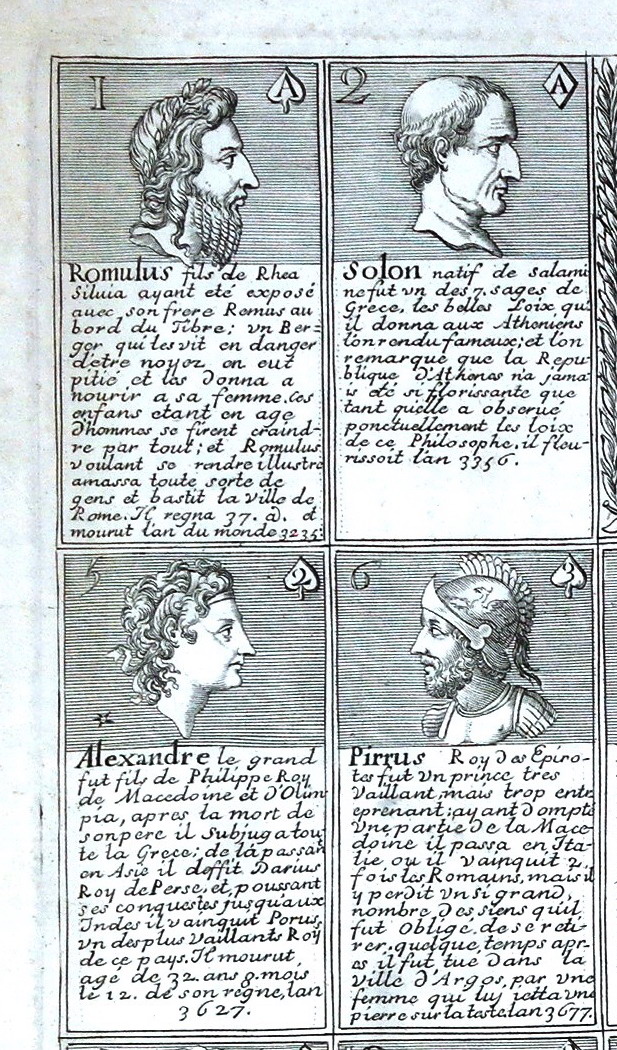 1 A
Romulus fils de Rhea
Siluia ayant eté exposé
auec son frere Remus au
bord du Tibre; vn Ber=
ger qui les vit en danger
d'etre noyez en eut
pitié et les donna a
nourir a sa femme. ces
enfans etant en age
d'hommes se firent craind-
re par tout; et Romulus
voulant se rendre illustre
amassa toute sorte de
gens et bastit la ville de
Rome. Il regna 37. a. et
mourut l'an du monde 3235
2 A
Solon natif de Salami
ne fut vn des 7. sages de
Grece, les belles Loix qu'
il donna aux Atheniens
l'on rendu fameux; et l'on
remarque que la Repu-
blique d'Athenes n'a jama-
is eté si florissante que
tant qu'elle a obserué
ponctuellement les loix
de ce Philosophe. il fleu-
rissoit l'an 3356.
5 2
Alexandre le grand
fut fils de Philippe Roy
de Macedoine et d'Olim
pia, apres la mort de
son pere il Subjuga tou
te la Grece; de la passat
en Asie il deffit Darius
Roy de Perse, et, poussant
ses conquestes jusqu'aux
Indes il vainquit Porus,
vn des plus Vaillants Roy
de ce pays. Il mourut,
agé de 32. ans 8. mois
le 12. de son regne, l'an
3627.
6 3
Pirrus Roy des Epiro-
tes fut vn prince tres
Vaillant, mais trop entr
eprenant; ayant dompté
vne partie de la Mace-
doine il passa en Ita-
lie ou il vainquit 2.
fois les Romains, mais il
y perdit vn si grand,
nombre des siens qu'il
fut Obligé de se reti-
rer. quelque temps apr-
es il fut tué dans la
ville d'Argos, par vne
femme qui luy ietta vne
pierre sur la teste. l'an 3677.